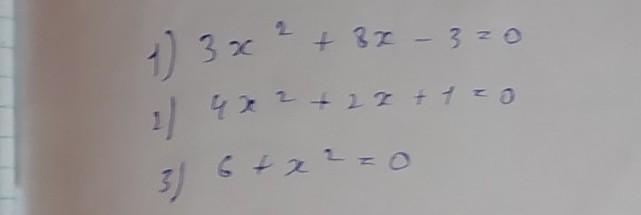 1) 3x² + 8x - 3 = 0
2) 4x² + 2x + 1 = 0
3) 6 + x² = 0